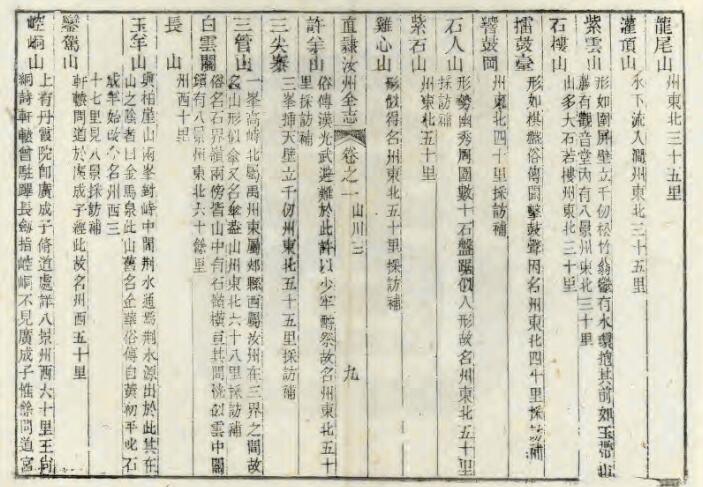 龍尾山　州東北三十五里
灌頂山　水下流入澗州東北三十五里
紫雲山　形如圍屏壁立千仞松竹蓊鬱有水環抱其前如玉帶山
蔴有觀音堂內有八景州東北三十里
石樓山　山多大石若樓州東北三十里
擂鼓臺　形如棋盤俗傳聞擊鼓聲因名州東北四十里採訪補
響鼓岡　州東北四十里採訪補
石人山　形勢幽秀周圍數十石盤踞似人形故名州東北五十里
採訪補
紫石山　州東北五十里
雞心山　形似得名州東北五十里採訪補
直隸汝州全志　卷之一　山川三　九
許羊山　俗傳漢光武避難於此許以少牢酧祭故名州東北五十
里採訪補
三尖寨　三峯挿天壁立千仞州東北五十五里採訪補
三管山　一峯高峙北屬禹州東屬郟縣西屬汝州在三界之間故
名山形似傘又名傘蓋山州東北六十八里採訪補
白雲關　俗名石界嶺兩傍皆山中有石嶺橫亘其間恍似雲中關
鎖有八景州東北六十餘里
長　山　州西十里
玉羊山　與柏崖山兩峯對峙中開荆水通焉荆水源出於此其在
山之陰者曰金馬泉此山舊名金華俗傳自黃初平叱石
成羊始故今名州西三
十七里見八景採訪補
鑾駕山　軒轅問道於廣成子經此故名州西五十里
崆峒山　上有丹霞院卽廣成子脩道處詳八景州西六十里王尙
絅詩軒轅曾駐蹕長劍指崆峒不見廣成子惟餘問道宮